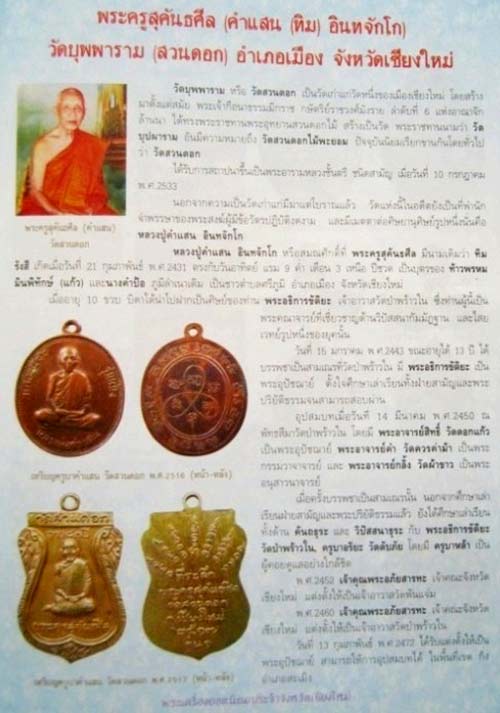 พระครูสุคันธศีล (คำแสน (ทิม) อินทจักโก)
วัดบุพพาราม (สวนดอก) อำเภอเมือง จังหวัดเชียงใหม่
วัดบุพพาราม หรือ วัดสวนดอก เป็นวัดเก่าแก่วัดหนึ่งของเมืองเชียงใหม่ โดยสร้าง
มาตั้งแต่สมัย พระเจ้ากือนาธรรมมิกราช กษัตริย์ราชวงศ์มังราย ลำดับที่ 6 แห่งอาณาจัก
ล้านนา ได้ทรงพระราชทานพระอุทยานสวนดอกไม้ สร้างเป็นวัด พระราชทานนามว่า วัด
บุปผาราม อันมีความหมายถึง วัดสวนดอกไม้พะยอม ปัจจุบันนิยมเรียกขานกันโดยทั่วไป
ว่า วัดสวนดอก
ได้รับการสถาปนาขึ้นเป็นพระอารามหลวงชั้นตรี ชนิดสามัญ เมื่อวันที่ 10 กรกฎาคม
พ.ศ.2533
นอกจากความเป็นวัดเก่าแก่มีมาแต่โบราณแล้ว วัดแห่งนี้ในอดีตยังเป็นที่พำนัก
จำพรรษาของพระสงฆ์ผู้มีข้อวัตรปฏิบัติงดงาม และมีเมตตาต่อศิษยานุศิษย์รูปหนึ่งนั่นคือ
หลวงปู่คำแสน อินทจักโก
หลวงปู่คำแสน อินทจักโก หรือสมณศักดิ์ที่ พระครูสุคันธศีล มีนามเดิมว่า ทิม
รังสี เกิดเมื่อวันที่ 21 กุมภาพันธ์ พ.ศ.2431 ตรงกับวันอาทิตย์ แรม 9 ค่ำ เดือน 3 เหนือ ปีชวด เป็นบุตรของ ท้าวพรหม
มินพิทักษ์ (แก้ว) และนางคำป้อ ภูมิลำเนาเดิม เป็นชาวตำบลศรีภูมิ อำเภอเมือง จังหวัดเชียงใหม่
เมื่ออายุ 10 ขวบ บิดาได้นำไปฝากเป็นศิษย์ของท่าน พระอธิการขัติยะ เจ้าอาวาสวัดป่าพร้าวใน ซึ่งท่านผู้นี้เป็น
พระครูสุคันธศีล (คำแสน)
วัดสวนดอก
พระคณาจารย์ที่เชี่ยวชาญด้านวิปัสสนากัมมัฏฐาน และไสย
เวทย์รูปหนึ่งของยุคนั้น
วันที่ 15 มกราคม พ.ศ.2443 ขณะอายุได้ 13 ปี ได้
บรรพชาเป็นสามเณรที่วัดป่าพร้าวใน มี พระอธิการขัติยะ เป็น
พระอุปัชฌาย์ ตั้งใจศึกษาเล่าเรียนทั้งฝ่ายสามัญและพระ
ปริยัติธรรมจนสามารถสอบผ่าน
อุปสมบทเมื่อวันที่ 14 มีนาคม พ.ศ.2450 ณ
พัทธสีมาวัดป่าพร้าวใน โดยมี พระอาจารย์สิทธิ์ วัดดอกแก้ว
เป็นพระอุปัชฌาย์ พระอาจารย์คำ วัดควรค่าม้า เป็นพระ
กรรมวาจาจารย์ และ พระอาจารย์กลิ้ง วัดผ้าขาว เป็นพระ
อนุสาวนาจารย์
เหรียญครูบาคำแสน วัดสวนดอก พ.ศ.2516 (หน้า-หลัง)
เมื่อครั้งบรรพชาเป็นสามเณรนั้น นอกจากศึกษาเล่า
เรียนฝ่ายสามัญและพระปริยัติธรรมแล้ว ยังได้ศึกษาเล่าเรียน
ทั้งด้าน คันถธุระ และ วิปัสสนาธุระ กับ พระอธิการขัติยะ
วัดป่าพร้าวใน, ครูบาอริยะ วัดดับภัย โดยมี ครูบาหล้า เป็น
ผู้คอยดูแลอย่างใกล้ชิด
พ.ศ.2459 เจ้าคุณพระอภัยสารทะ เจ้าคณะจังหวัด
เชียงใหม่ แต่งตั้งให้เป็นเจ้าอาวาสวัดพันแจ่ม
พ.ศ.2460 เจ้าคุณพระอภัยสารทะ เจ้าคณะจังหวัด
เชียงใหม่ แต่งตั้งให้เป็นเจ้าอาวาสวัดป่าพร้าวใน
วันที่ 13 กุมภาพันธ์ พ.ศ.2472 ได้รับแต่งตั้งให้เป็น
พระอุปัชฌาย์ สามารถให้การอุปสมบทได้ ในพื้นที่เขต กิ่ง
อำเภอสะเมิง
เหรียญครูบาคำแสน วัดสวนดอก พ.ศ.2517 (หน้า-หลัง)
พระเครื่องยอดนิยมประจำจังหวัดเชียงใหม่